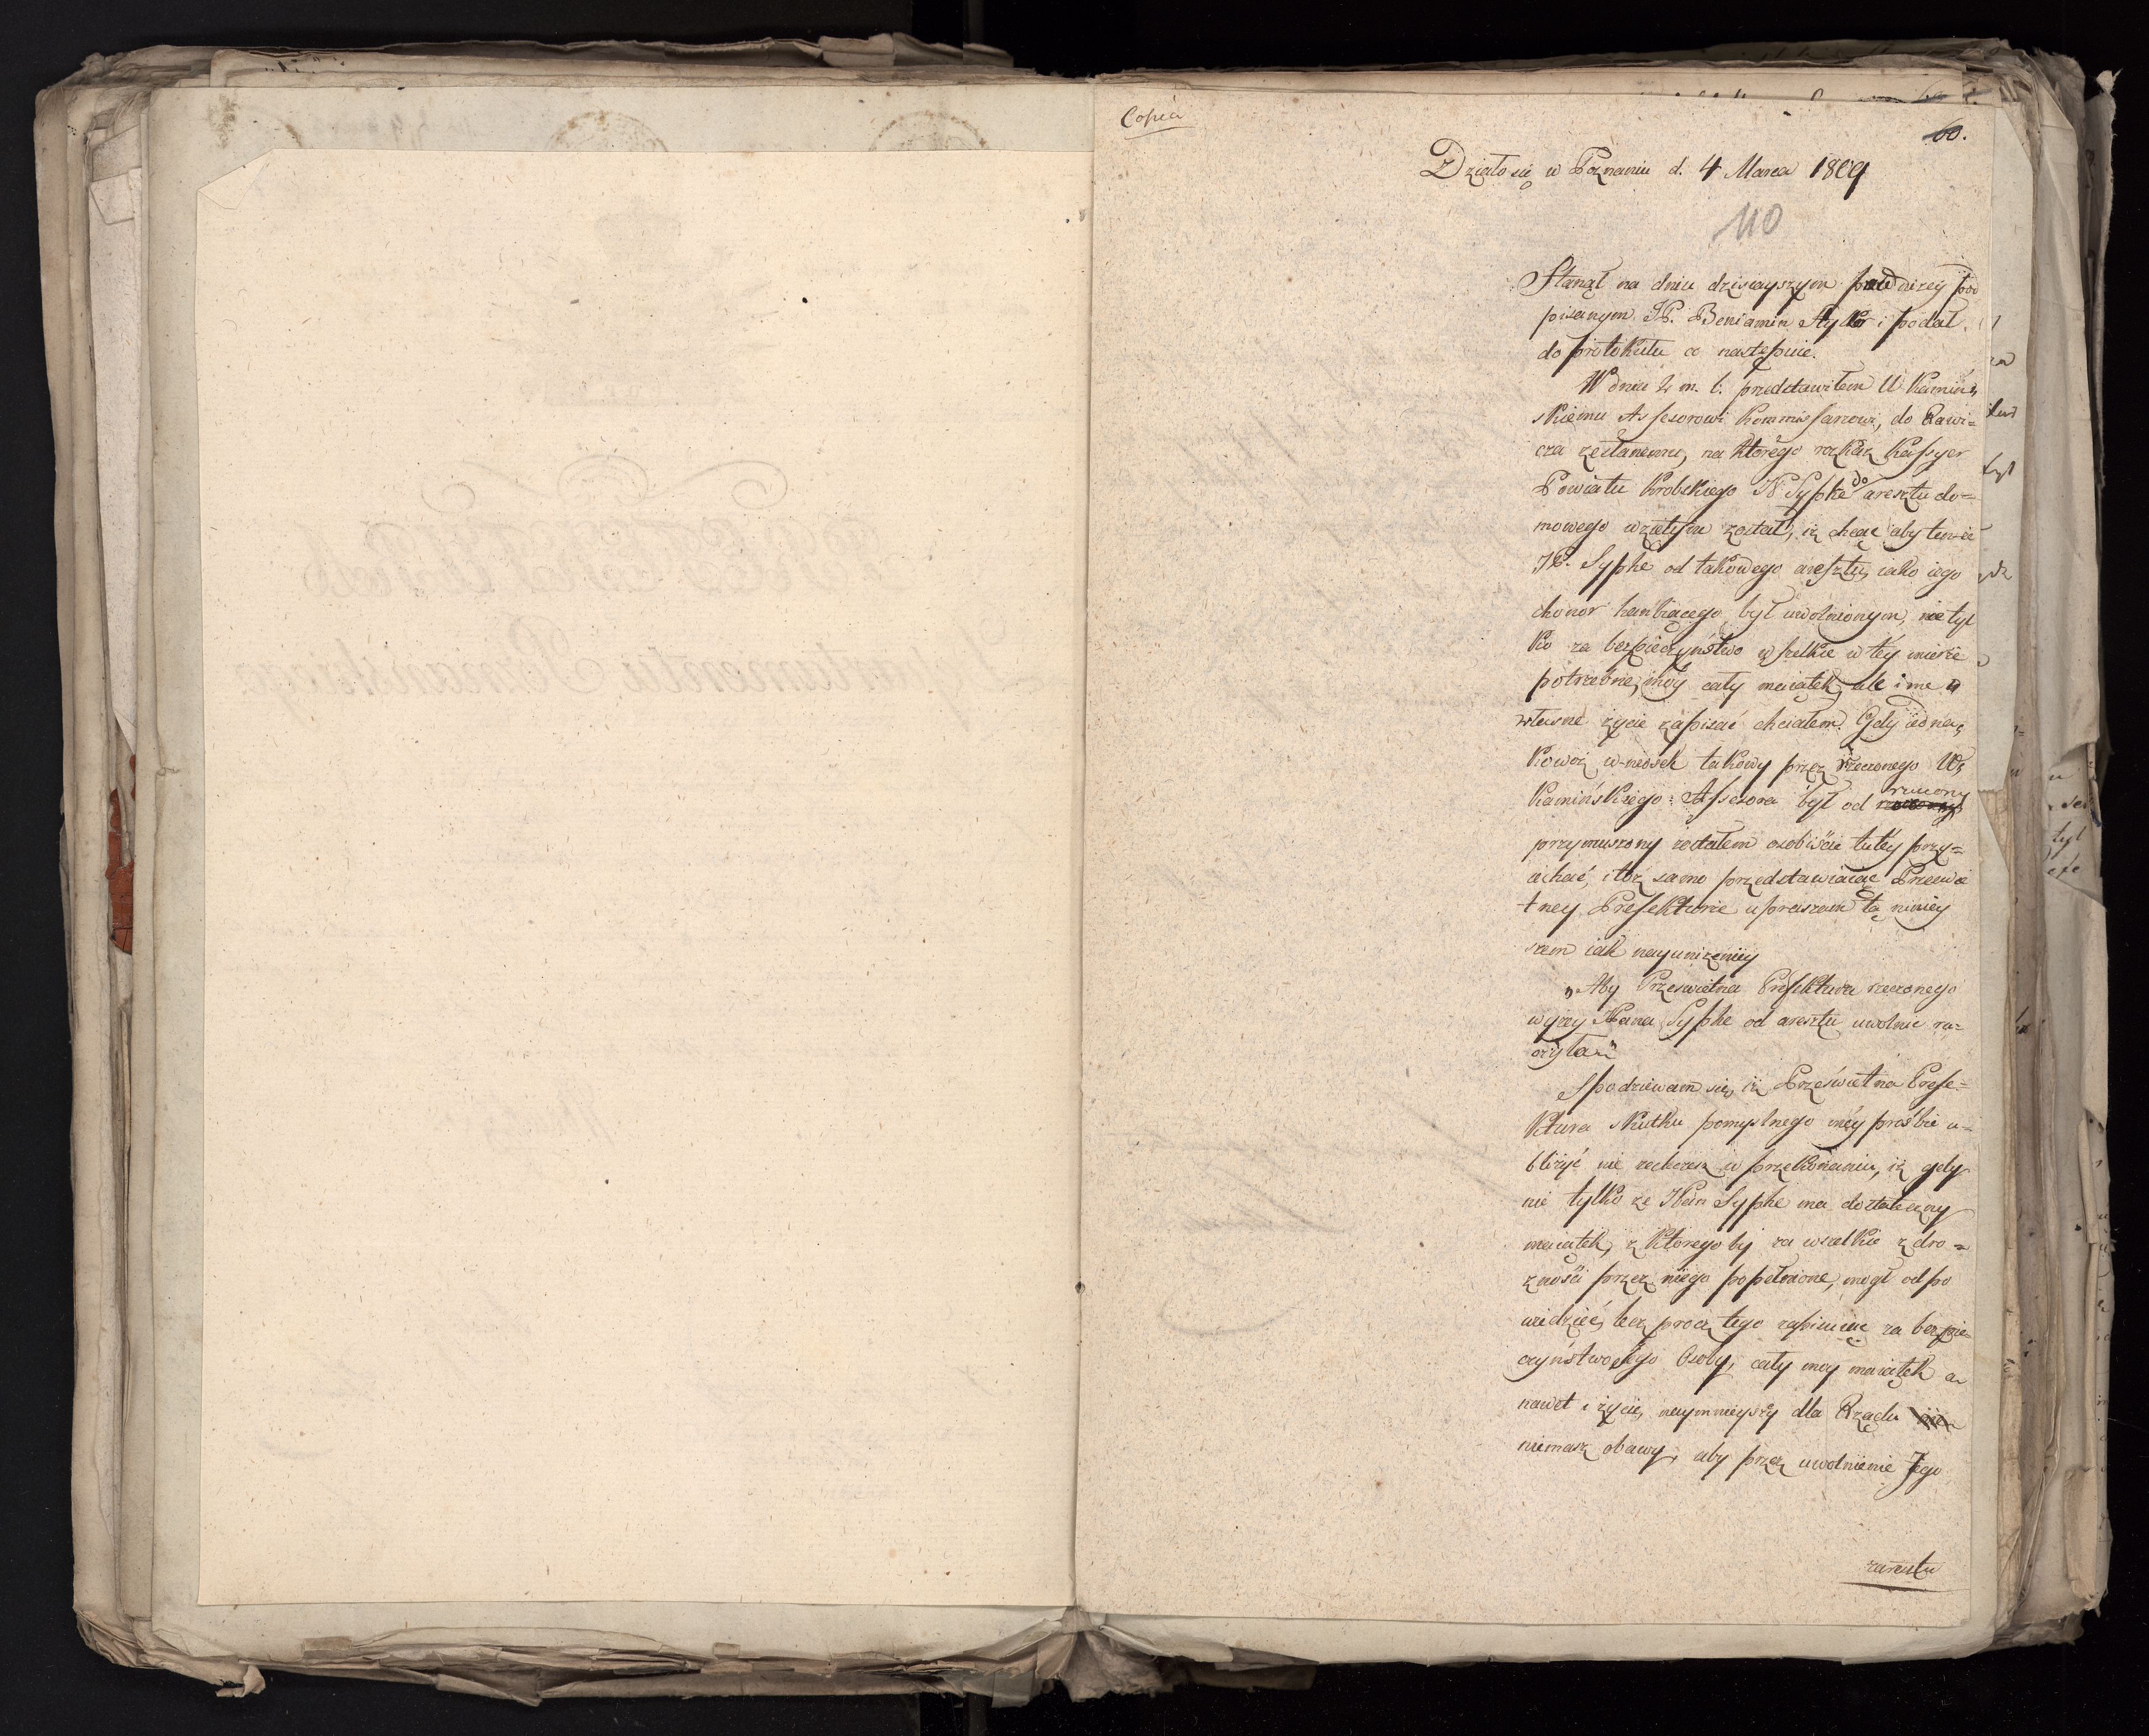 Copia
60.
Działo się w Poznaniu d. 4 Marca 1809
110
Stanął na dniu dzisiayszym przed niżey pod
pisanym JP. Beniamin i podał
do protokułu co następuie.
W dniu 2 m. b. przedstawiłem W Kamiń,
skiemu Assessorowi Kommissarzowi, do Rawi=
cza zesłanemu, na którego rozkaz Kassyer
Powiatu Krobskiego JP Sypke do aresztu do=
mowego wziętym został, iż chcąc aby tenże
JP. Sypke od takowego aresztu, iako iego
chonor hanbiącego, był uwolnionym, nie tyl
ko za bezpieczyństwo wszelkie w tey mierze
potrzebne, móy cały maiątek, ale i me
własne życie zapisać chciałem. Gdy iedna,
kowoż wniosek takowy przez rzeczonego W,
Kamińskiego Assessora był od rzucony
przymuszony zostałem osobiście tutey przy=
iechać, i toż samo przedstawiaiąc Prześwie
tney Prefekturze upraszam tą niniey
szem iak nayuniżeniey
„Aby Prześwietna Prefektura rzeczonego
wyżey Pana Sypke od aresztu uwolnić ra=
czyła"
Spodziewam się, iż Prześwietna Prefe=
ktura skutku pomyślnego méy prośbie u=
bliżyć nie zechcesz w przekonaniu, iż gdy
nie tylko że Pan Sypke ma dostateczny
maiątek, z którego by za wszelkie zdro=
żności przez niego popełnione, mógł odpo
wiedzieć, lecz procz tego zapisuiąc za bezpie
czyństwo Jego Osoby, cały moy maiątek a
nawet i życie, naymnieyszy dla Rządu
niemasz obawy, aby przez uwolnienie Jego
zaresztu